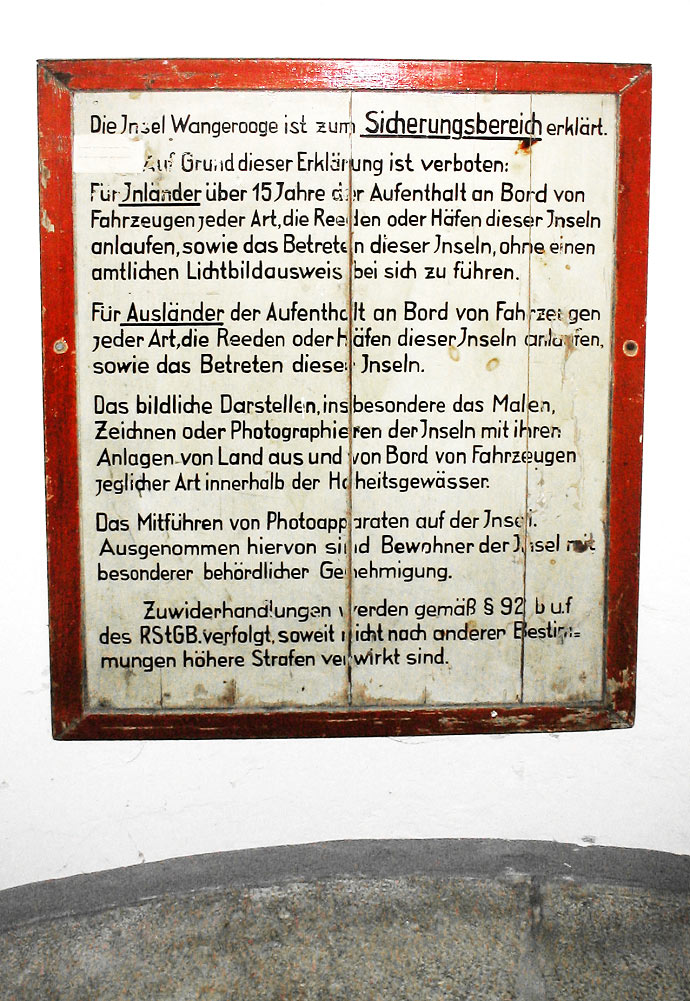 Die Insel Wangerooge ist zum Sicherungsbereich erklärt.
Auf Grund dieser Erklärung ist verboten:
Für Inländer über 15 Jahre der Aufenthalt an Bord von
Fahrzeugen jeder Art, die Reeden oder Häfen dieser Inseln
anlaufen, sowie das Betreten dieser Inseln, ohne einen
amtlichen Lichtbildausweis bei sich zu führen.
Für Ausländer der Aufenthalt an Bord von Fahrzeugen
jeder Art, die Reeden oder Häfen dieser Inseln anlaufen,
sowie das Betreten dieser Inseln.
Das bildliche Darstellen, insbesondere das Malen,
Zeichnen oder Photographieren der Inseln mit ihren
Anlagen von Land aus und von Bord von Fahrzeugen
jeglicher Art innerhalb der Hoheitsgewässer.
Das Mitführen von Photoapparaten auf der Insel.
Ausgenommen hiervon sind Bewohner der Insel mit
besonderer behördlicher Genehmigung.
Zuwiderhandlungen werden gemäß § 92 b u.f
des RStGB. verfolgt, soweit nicht nach anderen Bestim=
mungen höhere Strafen verwirkt sind.